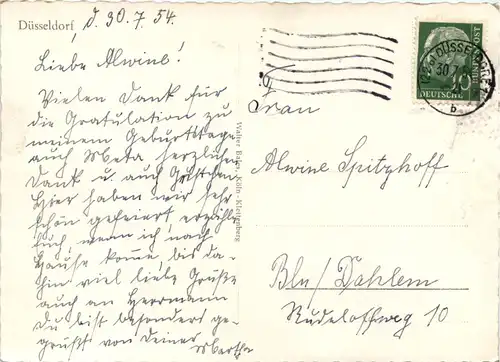 Düsseldorf, d. 30.7.54.
Liebe Alwine!
Vielen Dank für
die Gratulation zu
meinem Geburtstage
auch Meta herzlichen
Dank u. auch Gretchen.
Hier haben wir sehr
schön gefeiert erzähle
Euch, wenn ich nach
Hause komme, bis da-
hin viel liebe Grüße
auch an Herrmann
Du bist besonders ge-
grüßt von Deiner
Martha
Walter Köln-Klettenberg
DÜSSELDORF
30.7.
b
DEUTSCHE
BUNDESPOST
Frau
Alwine Spitzhoff
Bln/Dahlem
Rudeloffweg 10